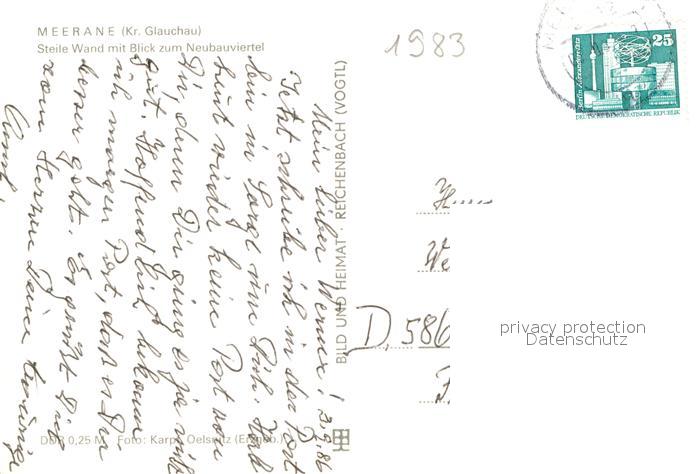 MEERANE (Kr. Glauchau)
Steile Wand mit Blick zum Neubauviertel
1983
25
Berlin, Alexanderplatz
DEUTSCHE DEMOKRATISCHE REPUBLIK
BILD UND HEIMAT · REICHENBACH (VOGTL)
Mein lieber Werner! 3.9.86
Jetzt schreibe ich in der Post
bin in Sorge um Dich. Hab
heut wieder keine Post von
Dir, denn Dir ging es ja nicht
gut. Hoffentlich bekomm
ich morgen Post, daß es Dir
besser geht. Es grüßt Dich
vom Herzen Deine
Herrn
We
D 586
privacy protection
Datenschutz
DDR 0,25 M Foto: Karpf, Oelsnitz (Erzgeb.)